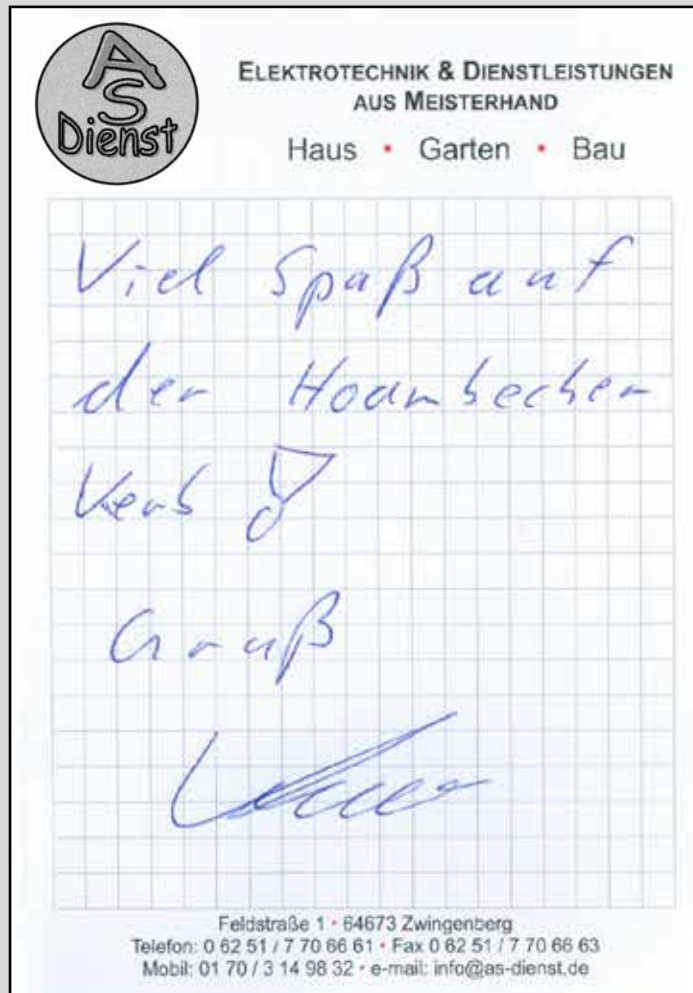 AS
Dienst
ELEKTROTECHNIK & DIENSTLEISTUNGEN
AUS MEISTERHAND
Haus • Garten • Bau
Viel Spaß auf
der Hoambecher
Kerb
Gruß
Feldstraße 1 • 64673 Zwingenberg
Telefon: 0 62 51 / 7 70 66 61 • Fax 0 62 51 / 7 70 66 63
Mobil: 01 70 / 3 14 98 32 • e-mail: info@as-dienst.de